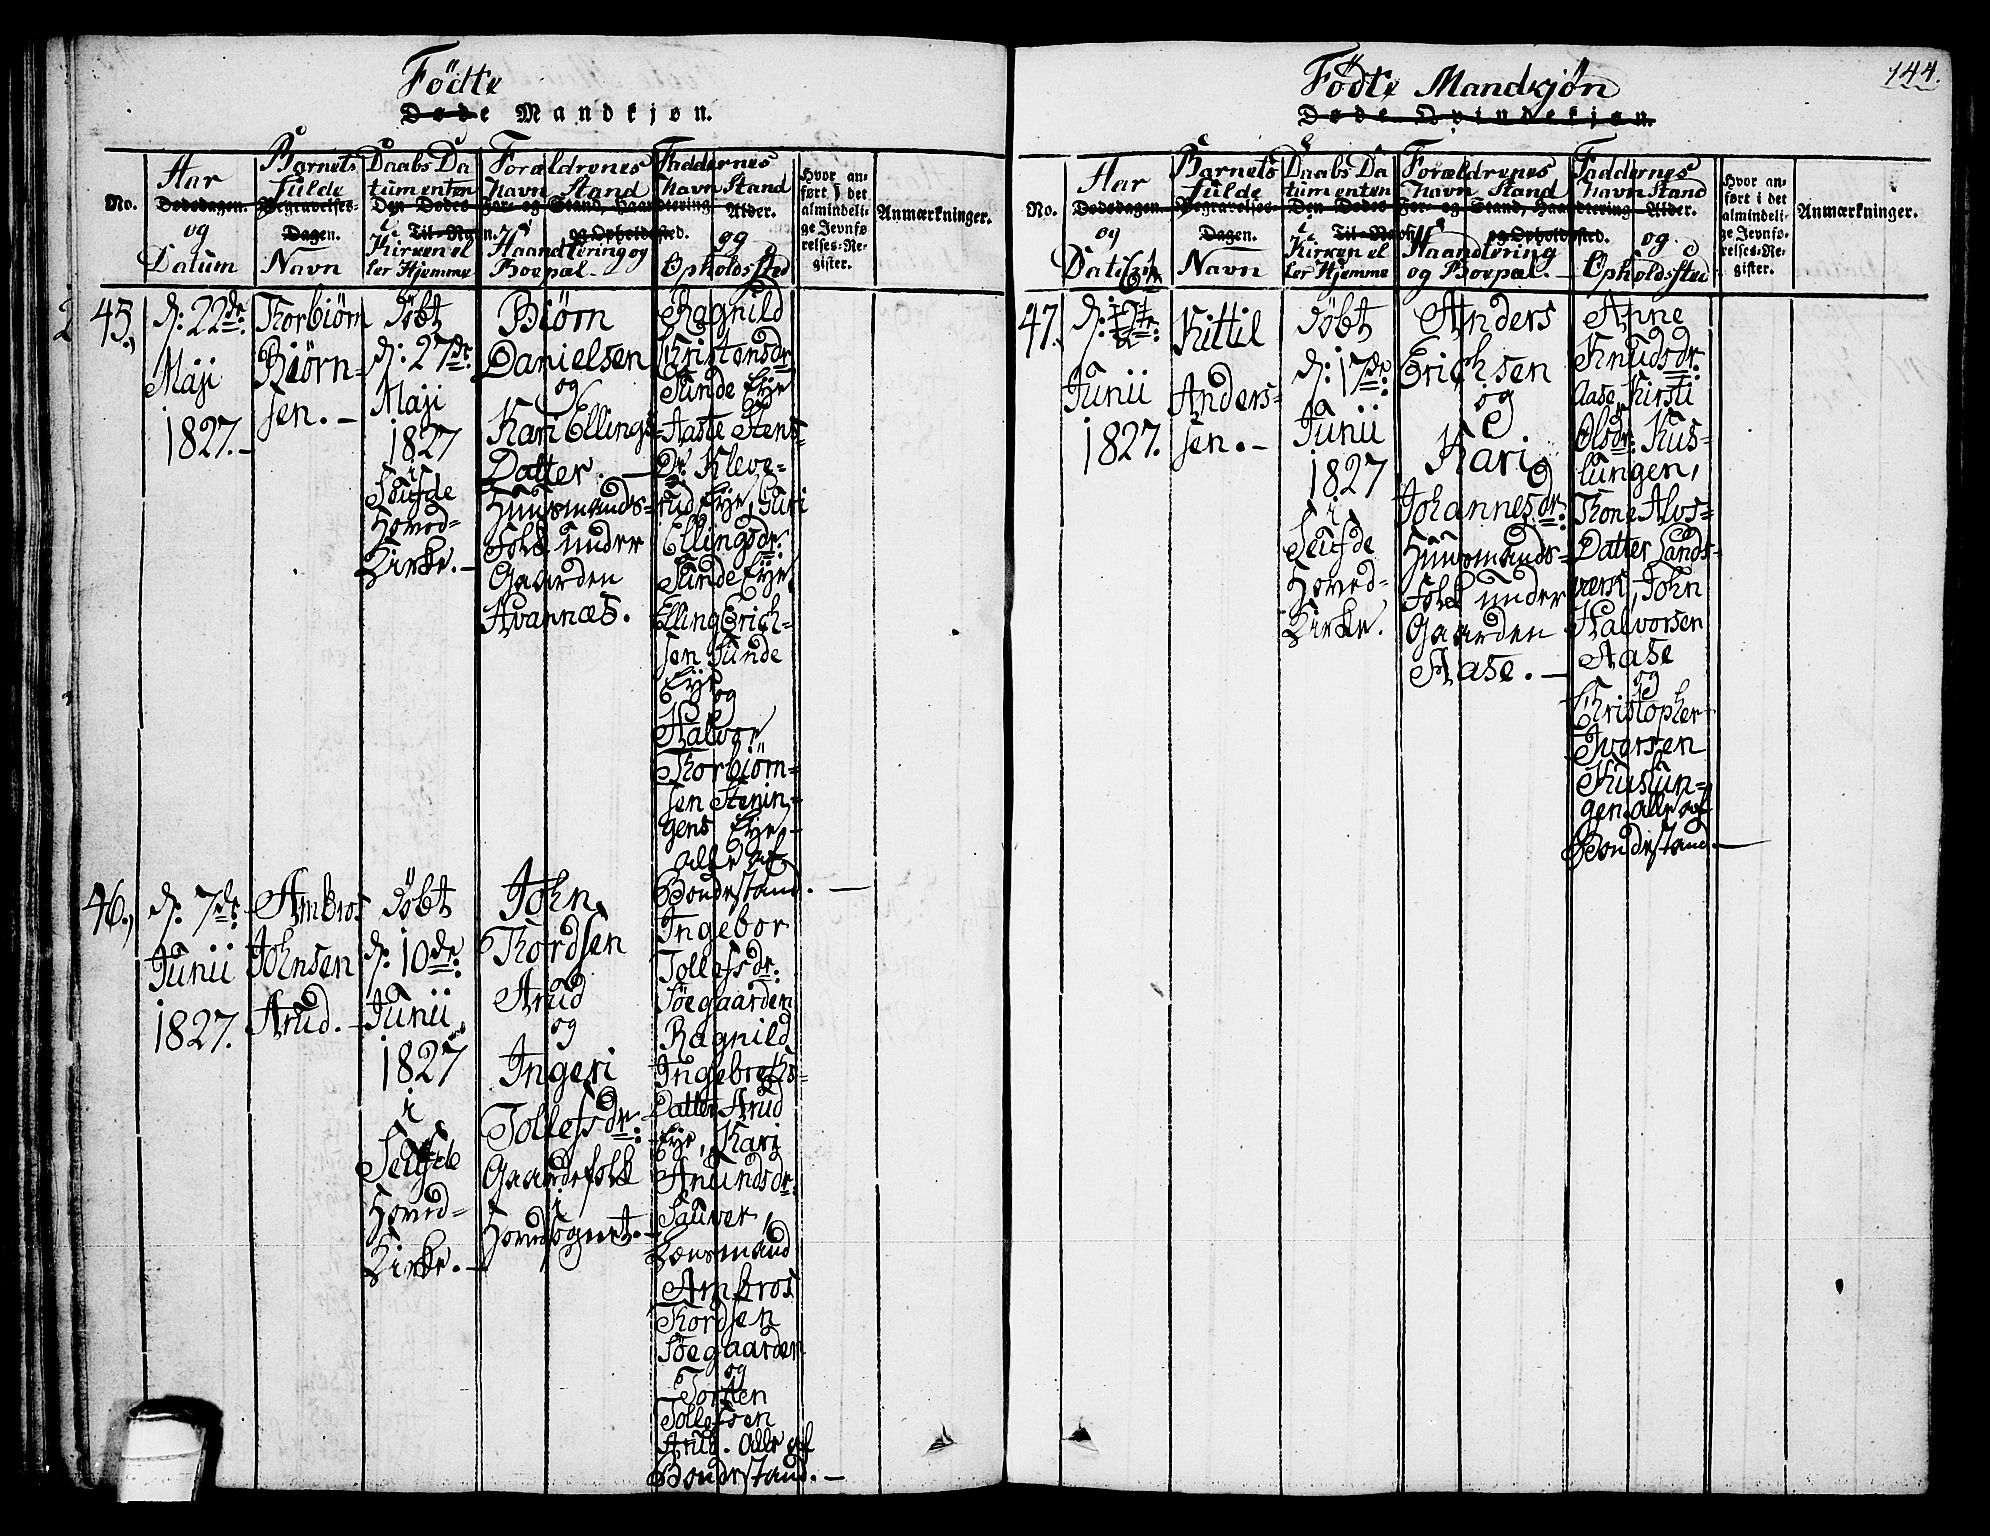 Fødte
Døde Mandkjøn.
No.
Aar
Dødsdagen.
og
Datum
Barnets
fulde
Begravelses-
Dagen.
Navn
Daabs Da
tum enten
Den Dødes
i Til-Navn.
Kirken el
ler Hjemme
Forældrenes
Navn Stand
For- og Stand, Haandtering
og Opholdsted.
Haandtering og
Boepæl.-
Faddernes
Navn Stand
Alder.
og
Opholdsted
Hvor an-
ført i det
almindeli-
ge Jevnfø-
relses-Re-
gister.
Anmærkninger.
45.,
d: 22de:
Maji
1827.-
Thorbiørn
Biørn-
sen.-
døbt
d: 27de:
Maji
1827
i
Seufde
Hoved-
Kirke.-
Biørn
Danielsen
og
Kari Ellings-
Datter.-
Huusmands-
Folk under
Gaarden
Avannæs.
Ragnild
Kristensdr
Sunde Eye
Aaste Stens-
Dr Kleve-
rud Eye, Guri
Ellingsdr:
Sunde Eye,
Elling Erich-
sen Sunde
Eye
og
Halvor
Thorbiørn-
sen Stenin-
gens Eye,-
alle af
Bondestand.-
46.,
d: 7de:
Junii
1827.
Ambros
Johnsen
Arud.-
døbt
d: 10de:
Junii
1827
i
Seufde
Hoved-
Kirke.-
John
Thordsen
Arud
og
Ingeri
Tollefsdr:
Gaardefolk
i
Hovedsognet.-
Ingebor
Tollefsdr:
Søegaarden
Ragnild
Ingebreths-
Datter Arud
Eye, Kari
Anundsdr:
Sauver,
Lensmand
Ambros
Thordsen
Søegaarden
og
Torsten
Tollefsen
Arud. alle af
Bondestand.-
144.
Fødte Mandkjøn
Døde Qvindekjøn.
No.
Aar
Dødsdagen.
og
Datum
Barnets
fulde
Begravelses-
Dagen.
Navn
Daabs Da
tum enten
Den Dødes
i Til-Navn
Kirken el
ler Hjemme
Forældrenes
Navn Stand
For- og Stand, Haandtering
og Opholdsted.
Haandtering
og Boepæl.-
Faddernes
Navn Stand
Alder.
og
Opholdsted
Hvor an-
ført i det
almindeli-
ge Jevnfø-
relses-Re-
gister.
Anmærkninger.
47.
Junii
1827.
Kittil
Anders-
sen.-
døbt
d: 17de:
Junii
1827
i
Seufde
Hoved-
Kirke.
Anders
Erichsen
og
Kari
Johannesdr:
Huusmands-
Folk under
Gaarden
Aase.-
Anne
Knudsdr:
Aase, Kirsti
Olsdr: Kus-
lungen,
Thone Alvs-
Datter Lands-
verk, John
Halvorsen
Aase
og
Christopher
Iversen
Kuslun-
gen, alle af
Bondestand.-